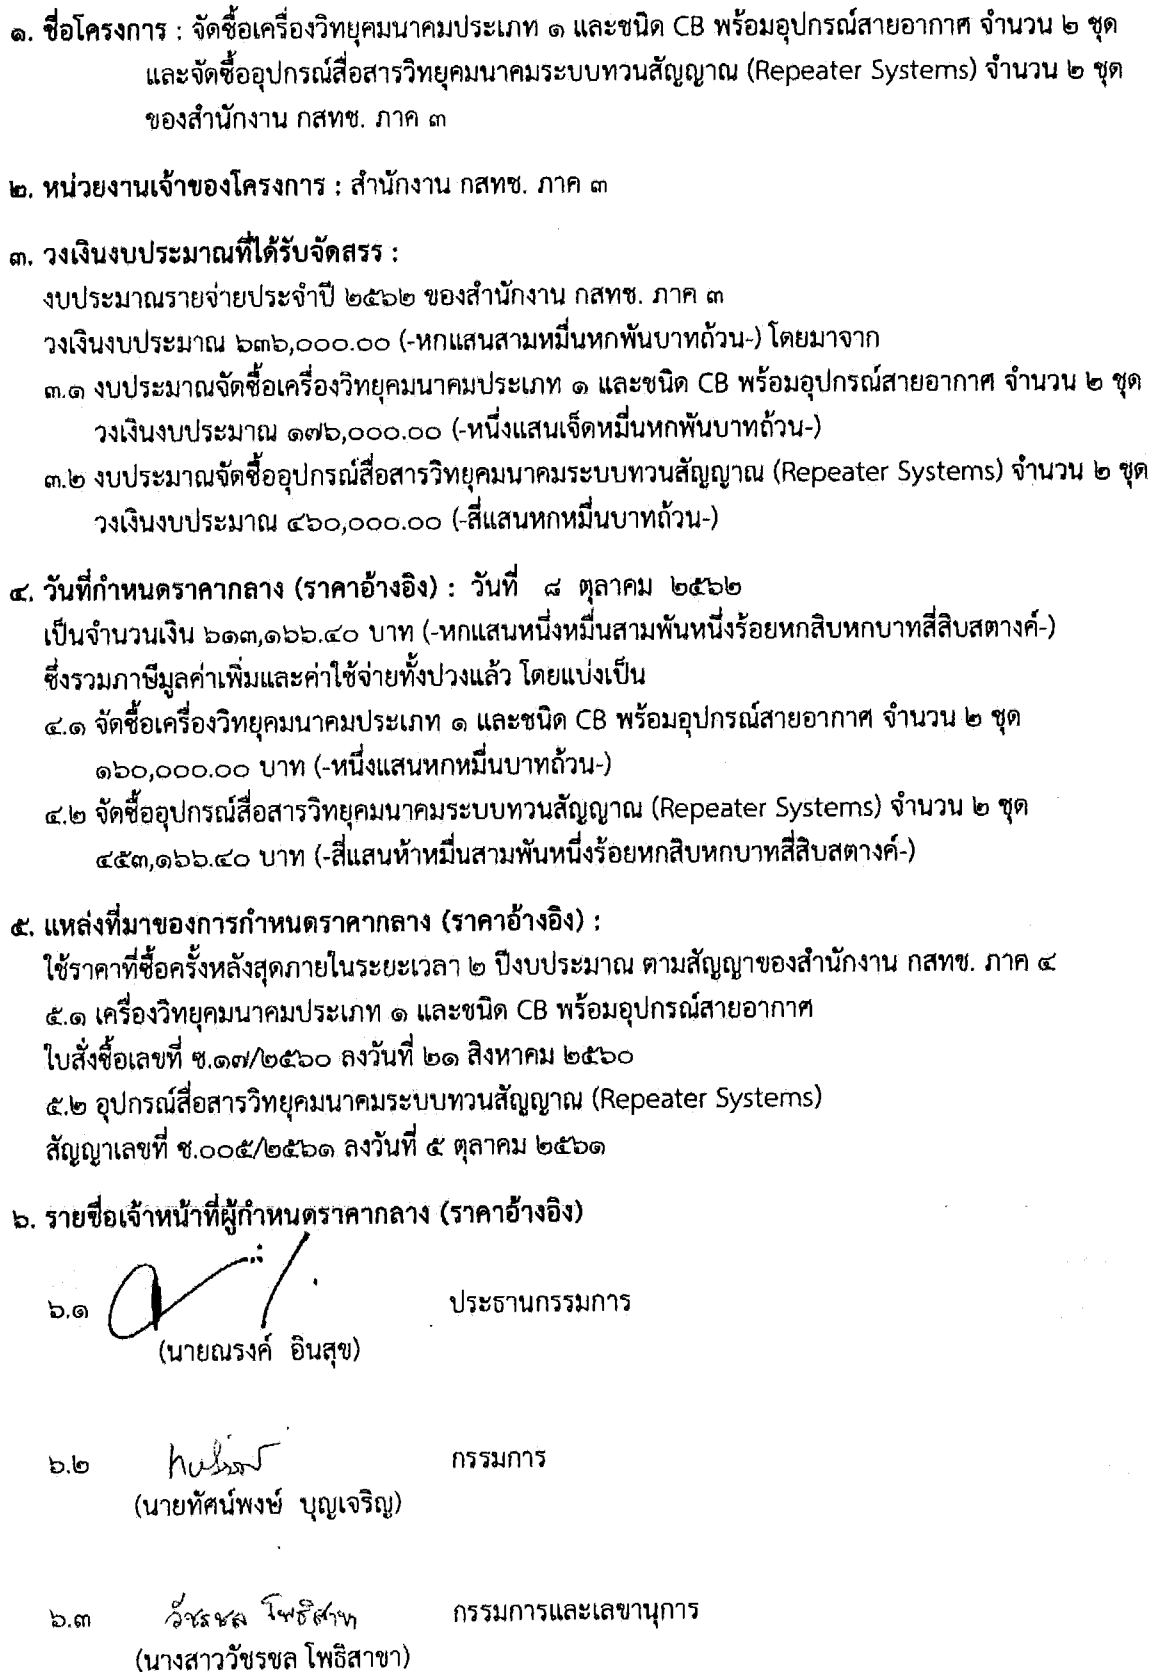 ๑. ชื่อโครงการ : จัดซื้อเครื่องวิทยุคมนาคมประเภท ๑ และชนิด CB พร้อมอุปกรณ์สายอากาศ จำนวน ๒ ชุด
และจัดซื้ออุปกรณ์สื่อสารวิทยุคมนาคมระบบทวนสัญญาณ (Repeater Systems) จำนวน ๒ ชุด
ของสำนักงาน กสทช. ภาค ๓
๒. หน่วยงานเจ้าของโครงการ : สำนักงาน กสทช. ภาค ๓
๓. วงเงินงบประมาณที่ได้รับจัดสรร :
งบประมาณรายจ่ายประจำปี ๒๕๖๒ ของสำนักงาน กสทช. ภาค ๓
วงเงินงบประมาณ ๖๓๖,๐๐๐.๐๐ (-หกแสนสามหมื่นหกพันบาทถ้วน-) โดยมาจาก
๓.๑ งบประมาณจัดซื้อเครื่องวิทยุคมนาคมประเภท ๑ และชนิด CB พร้อมอุปกรณ์สายอากาศ จำนวน ๒ ชุด
วงเงินงบประมาณ ๑๗๖,๐๐๐.๐๐ (-หนึ่งแสนเจ็ดหมื่นหกพันบาทถ้วน-)
๓.๒ งบประมาณจัดซื้ออุปกรณ์สื่อสารวิทยุคมนาคมระบบทวนสัญญาณ (Repeater Systems) จำนวน ๒ ชุด
วงเงินงบประมาณ ๔๖๐,๐๐๐.๐๐ (-สี่แสนหกหมื่นบาทถ้วน-)
๔. วันที่กำหนดราคากลาง (ราคาอ้างอิง) : วันที่ ๘ ตุลาคม ๒๕๖๒
เป็นจำนวนเงิน ๖๑๓,๑๖๖.๔๐ บาท (-หกแสนหนึ่งหมื่นสามพันหนึ่งร้อยหกสิบหกบาทสี่สิบสตางค์-)
ซึ่งรวมภาษีมูลค่าเพิ่มและค่าใช้จ่ายทั้งปวงแล้ว โดยแบ่งเป็น
๔.๑ จัดซื้อเครื่องวิทยุคมนาคมประเภท ๑ และชนิด CB พร้อมอุปกรณ์สายอากาศ จำนวน ๒ ชุด
๑๖๐,๐๐๐.๐๐ บาท (-หนึ่งแสนหกหมื่นบาทถ้วน-)
๔.๒ จัดซื้ออุปกรณ์สื่อสารวิทยุคมนาคมระบบทวนสัญญาณ (Repeater Systems) จำนวน ๒ ชุด
๔๕๓,๑๖๖.๔๐ บาท (-สี่แสนห้าหมื่นสามพันหนึ่งร้อยหกสิบหกบาทสี่สิบสตางค์-)
๕. แหล่งที่มาของการกำหนดราคากลาง (ราคาอ้างอิง) :
ใช้ราคาที่ซื้อครั้งหลังสุดภายในระยะเวลา ๒ ปีงบประมาณ ตามสัญญาของสำนักงาน กสทช. ภาค ๔
๕.๑ เครื่องวิทยุคมนาคมประเภท ๑ และชนิด CB พร้อมอุปกรณ์สายอากาศ
ใบสั่งซื้อเลขที่ ซ.๑๗/๒๕๖๐ ลงวันที่ ๒๑ สิงหาคม ๒๕๖๐
๕.๒ อุปกรณ์สื่อสารวิทยุคมนาคมระบบทวนสัญญาณ (Repeater Systems)
สัญญาเลขที่ ซ.๐๐๕/๒๕๖๑ ลงวันที่ ๕ ตุลาคม ๒๕๖๑
๖. รายชื่อเจ้าหน้าที่ผู้กำหนดราคากลาง (ราคาอ้างอิง)
๖.๑ ประธานกรรมการ
(นายณรงค์ อินสุข)
๖.๒ กรรมการ
(นายทัศน์พงษ์ บุญเจริญ)
๖.๓ วัชรชล โพธิสาขา กรรมการและเลขานุการ
(นางสาววัชรชล โพธิสาขา)